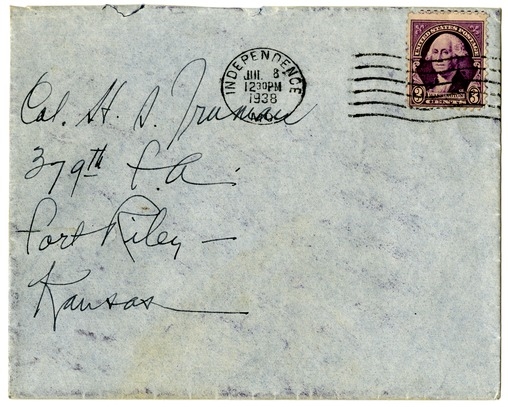 UNITED STATES POSTAGE
3 3
INDEPENDENCE
JUL 8
12 30 PM
1938
MO.
Col. H. S. Truman
379th F.A.
Fort Riley —
Kansas